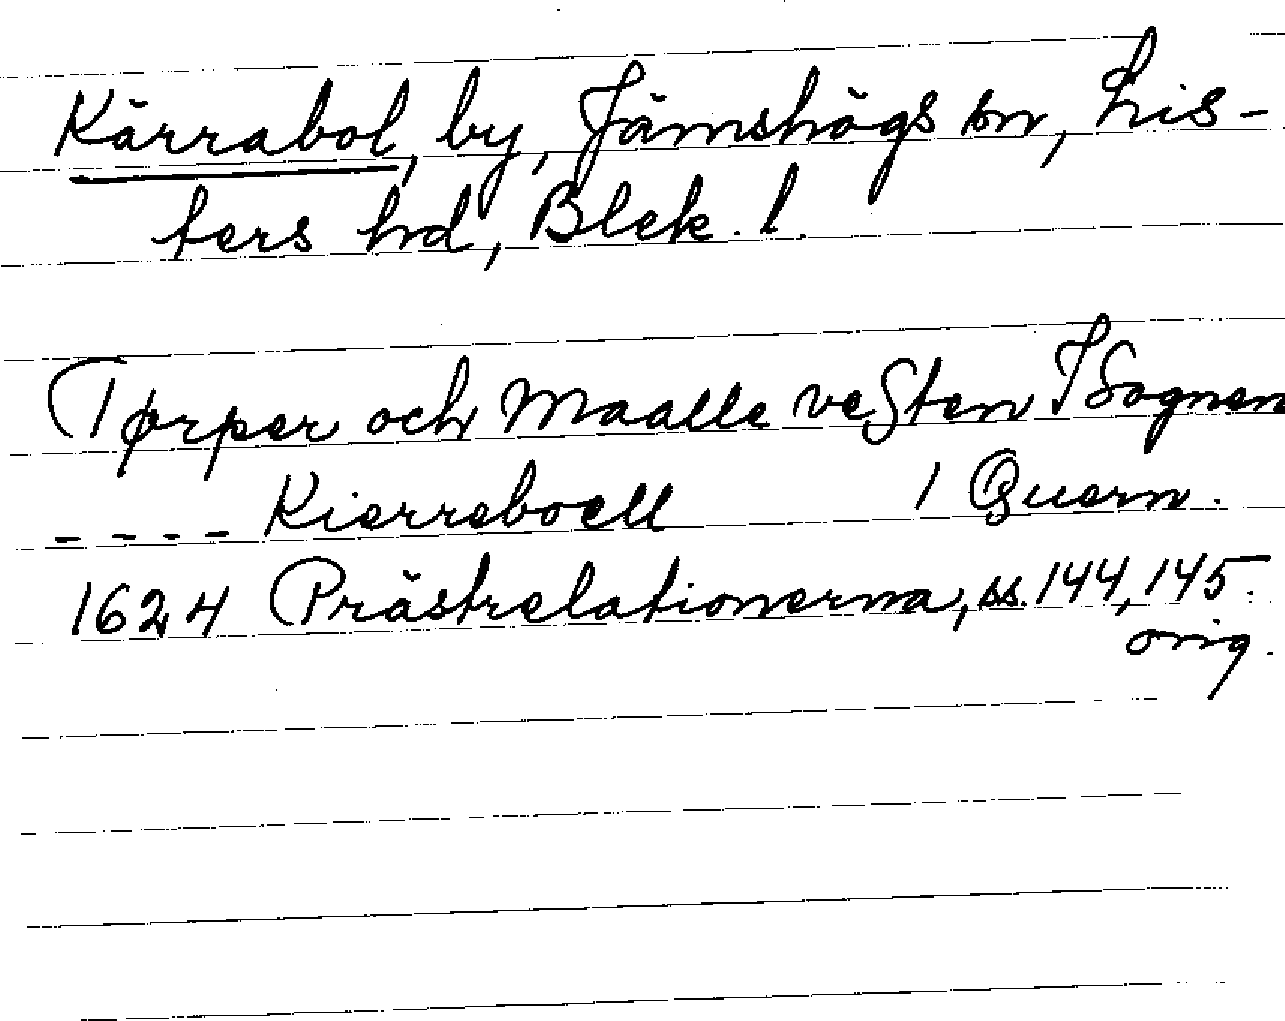 Kärrabol, by, Jämshögs sn, Lis-
ters hd, Blek. l.
Tørper och Maalle vesten I Sognen
- - - - Kierreboell 1 Quern.
1624 Prästrelationerna, ss. 144, 145.
orig.